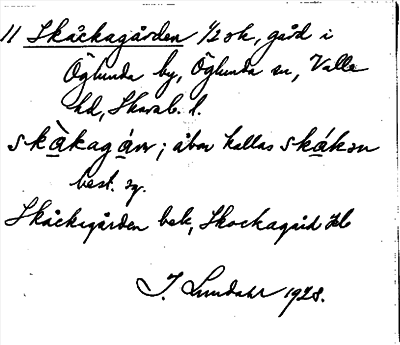 11 Skåckagården 1/2 sk, gård i
Öglunda by, Öglunda sn, Valle
hd, Skarab. l.
skàkagán; åbor kallas skákən
best. sg.
Skåckegården bek, Skockagård Jb
I. Lundahl 1928.